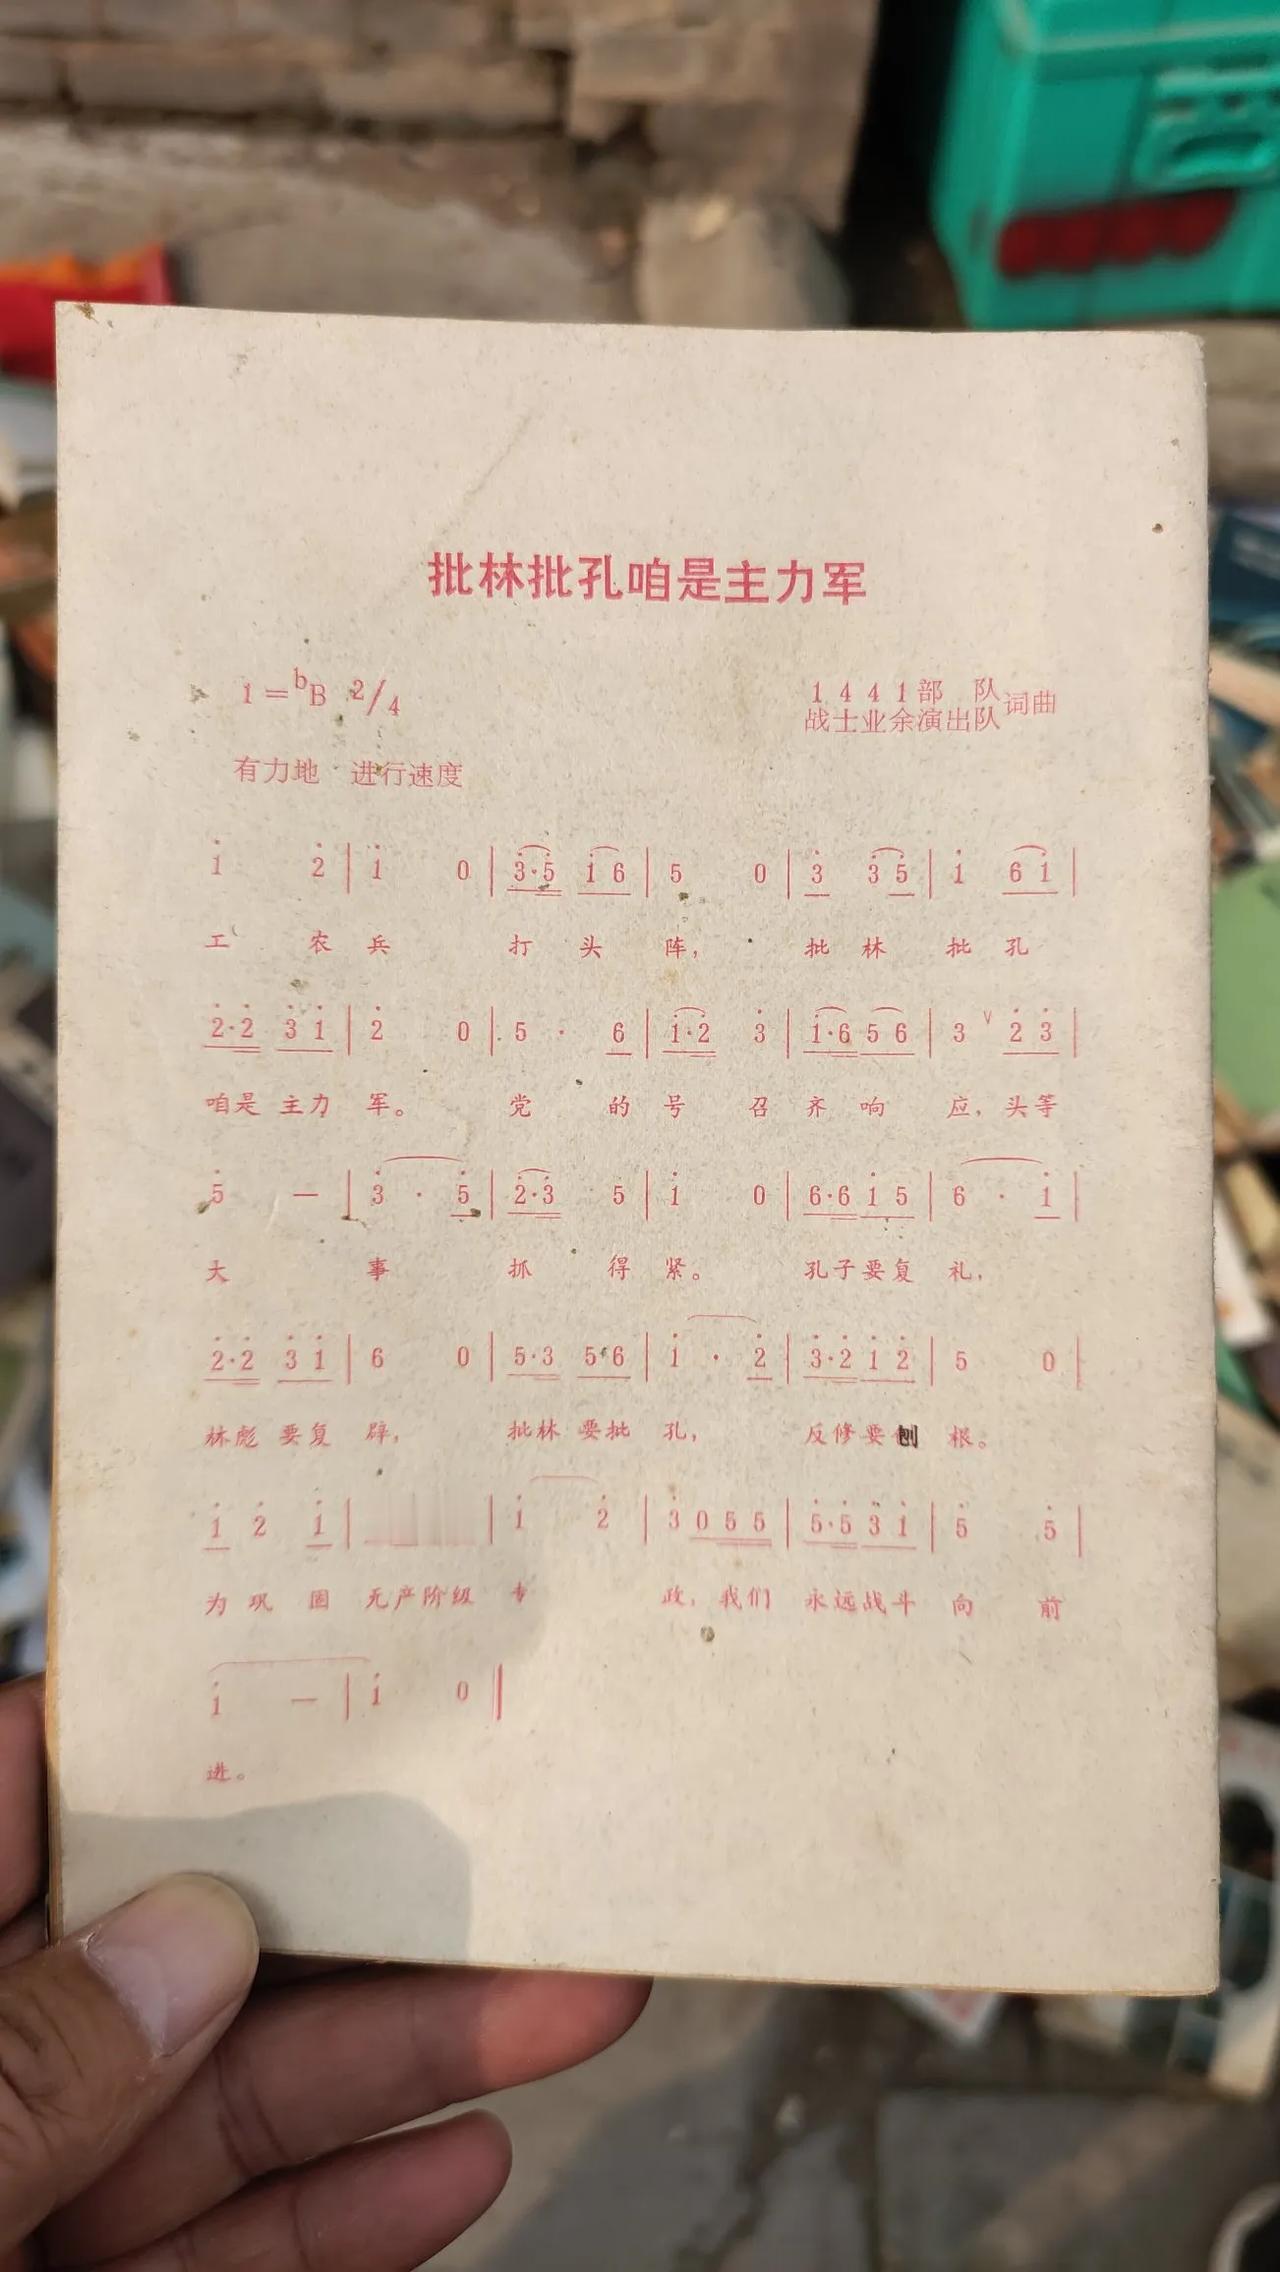 批林批孔咱是主力军
1=ᵇB 2/4
1441部 队
战士业余演出队 词曲
有力地 进行速度
i 2̇ | i 0 | 3̇·5̇ i 6 | 5 0 | 3̇ 3̇ 5̇ | i 6 i |
工 农 兵 打 头 阵, 批 林 批 孔
2̇·2̇ 3̇ i | 2̇ 0 | 5 · 6 | i·2̇ 3̇ | i·6 5 6 | 3 ∨ 2̇ 3̇ |
咱是 主力 军。 党 的 号 召 齐 响 应, 头等
5̇ — | 3̇ · 5̇ | 2̇·3̇ 5 | i 0 | 6·6 i 5 | 6 · i |
大 事 抓 得 紧。 孔子要复 礼,
2̇·2̇ 3̇ i | 6 0 | 5·3 5 6 | i · 2̇ | 3̇·2̇ i 2̇ | 5 0 |
林彪 要复 辟, 批林 要批 孔, 反修要刨 根。
i 2̇ i | | i 2̇ | 3̇ 0 5 5 | 5̇·5̇ 3̇ i | 5̇ 5̇ |
为 巩 固 无产阶级 政, 我们 永远战斗 向 前
i — | i 0 ‖
进。